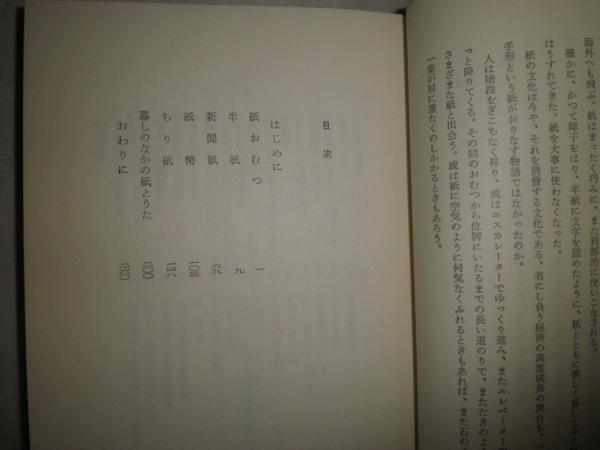 海外へも飛ぶ。紙はまったく巧みに、また刹那的に使いこなされる。
確かに、かつて障子をはり、半紙に文字を認めたように、紙とともに慎しく暮してゆく
はうすれてきた。紙を大事に使わなくなった。
紙の文化は今や、それを消費する文化である。名にし負う経済の高度成長の舞台も、一
手形という紙がおりなす物語ではなかったのか。
人は階段をぎこちなく昇り、或はエスカレーターでゆっくり進み、またエレベーターで
っと降りてくる。その間のおむつから位牌にいたるまでの長い道のりで、またたきのよ
さまざまな紙と出会う。或は紙に空気のように何気なくふれるときもあれば、また石の
一葉が肩に重たくのしかかるときもあろう。
目次
はじめに
紙おむつ 一
半紙 九
新聞紙 六九
紙幣 一〇三
ちり紙 一四八
暮しのなかの紙とうた 二〇〇
おわりに